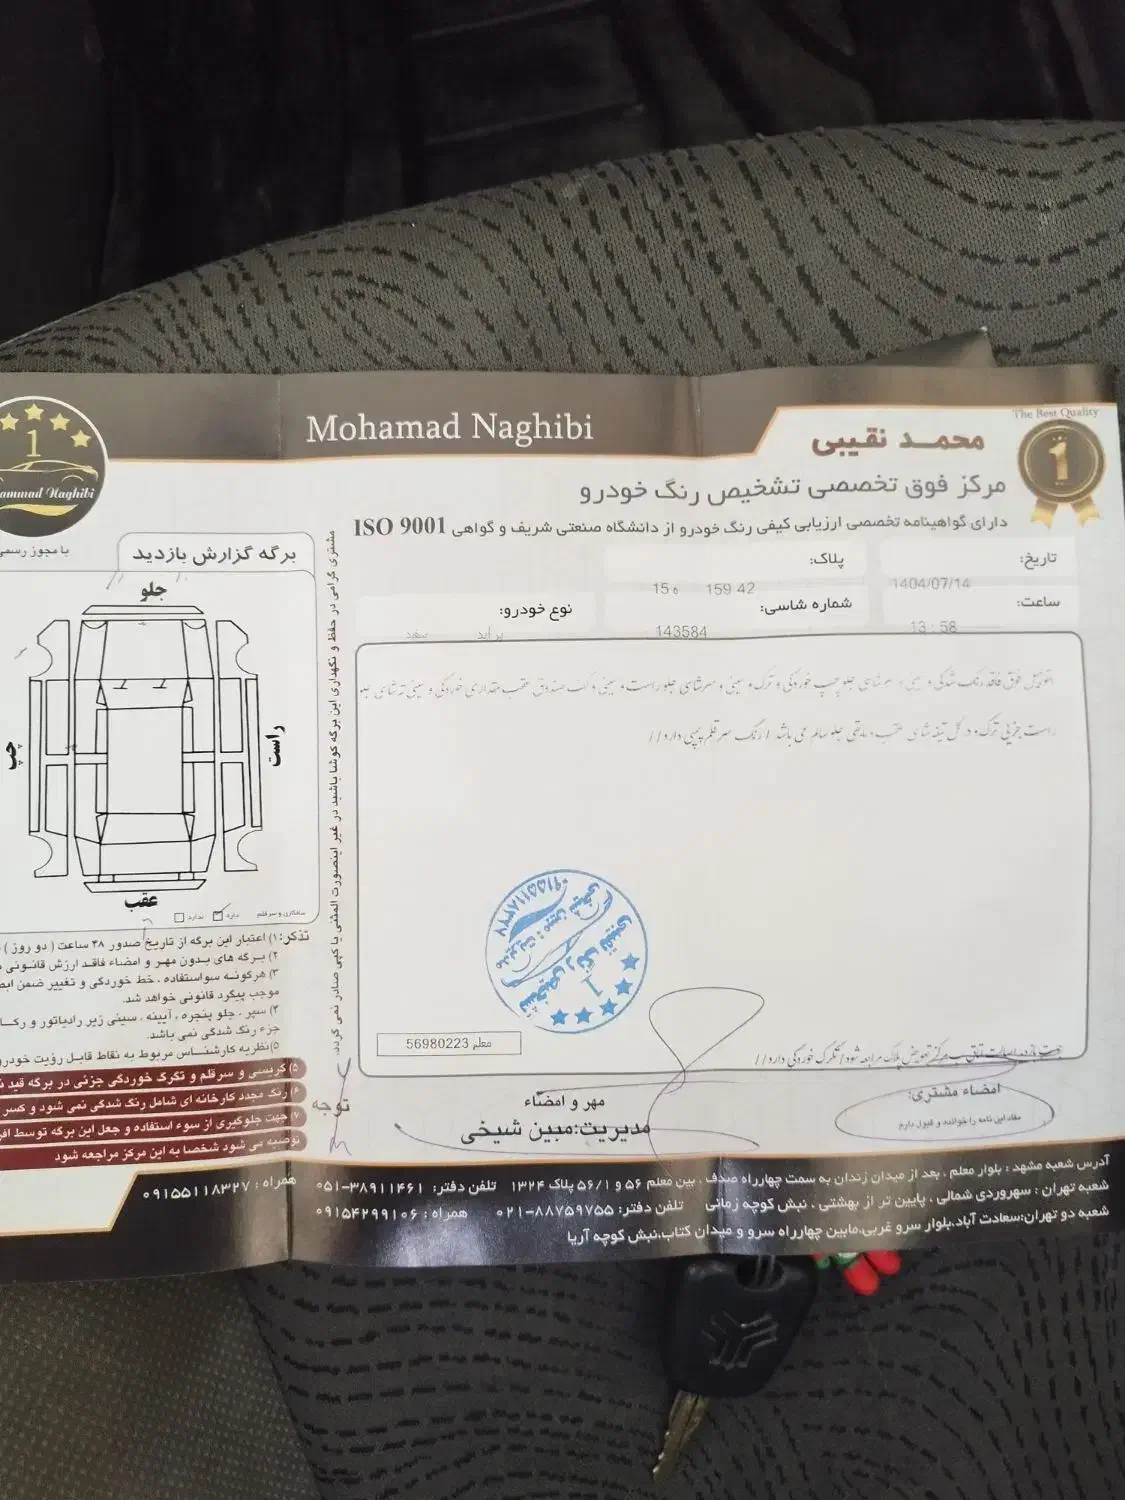 The Best Quality
1
محمـد نقیبی
Mohamad Naghibi
مرکز فوق تخصصی تشخیص رنگ خودرو
دارای گواهینامه تخصصی ارزیابی کیفی رنگ خودرو از دانشگاه صنعتی شریف و گواهی ISO 9001
تاریخ: 1404/07/14
پلاک: 15 ه 159 42
ساعت: 13 : 58
شماره شاسی: 143584
نوع خودرو: پراید سفید
اتومبیل فوق فاقد رنگ شدگی و سینی و سرشاسی جلو چپ خوردگی و ترک و سینی و سرشاسی جلو راست و سینی و کف صندوق عقب مقداری خوردگی و سینی ته شاسی جلو
راست جزیی ترک و در کل تیغه شاسی عقب و مابقی جلو سالم می باشد / رنگ سر قلم پمپی دارد//
جهت بازدید اصالت اتاق به مرکز تعویض پلاک مراجعه شود/ تگرگ خوردگی دارد//
معلم 56980223
مهر و امضاء
مدیریت: مبین شیخی
امضاء مشتری:
مفاد این نامه را خوانده و قبول دارم
مشتری گرامی در حفظ و نگهداری این برگه کوشا باشید در غیر اینصورت المثنی یا کپی صادر نمی گردد.
1
ammad Naghibi
با مجوز رسمی
برگه گزارش بازدید
جلو
چپ
راست
عقب
صافکاری و سرقلم دارد ندارد
تذکر: ۱) اعتبار این برگه از تاریخ صدور ۴۸ ساعت ( دو روز )
۲) برگه های بدون مهر و امضاء فاقد ارزش قانونی
۳) هرگونه سواستفاده ، خط خوردگی و تغییر ضمن
موجب پیگرد قانونی خواهد شد.
۴) سپر ، جلو پنجره ، آیینه ، سینی زیر رادیاتور و
جزء رنگ شدگی نمی باشد.
۵) نظریه کارشناس مربوط به نقاط قابل رؤیت خودرو
۵) گریسی و سرقلم و تگرگ خوردگی جزئی در برگه قید
۶) رنگ مجدد کارخانه ای شامل رنگ شدگی نمی شود و کسر
۷) جهت جلوگیری از سوء استفاده و جعل این برگه توسط
توصیه می شود شخصا به این مرکز مراجعه شود
توجه
آدرس شعبه مشهد : بلوار معلم ، بعد از میدان زندان به سمت چهارراه صدف ، بین معلم ۵۶ و ۵۶/۱ پلاک ۱۳۲۴ تلفن دفتر: ۳۸۹۱۱۴۶۱-۰۵۱ همراه : ۰۹۱۵۵۱۱۸۳۲۷
شعبه تهران : سهروردی شمالی ، پایین تر از بهشتی ، نبش کوچه زمانی تلفن دفتر: ۸۸۷۵۹۷۵۵-۰۲۱ همراه : ۰۹۱۵۴۲۹۹۱۰۶
شعبه دو تهران:سعادت آباد،بلوار سرو غربی،مابین چهارراه سرو و میدان کتاب،نبش کوچه آریا